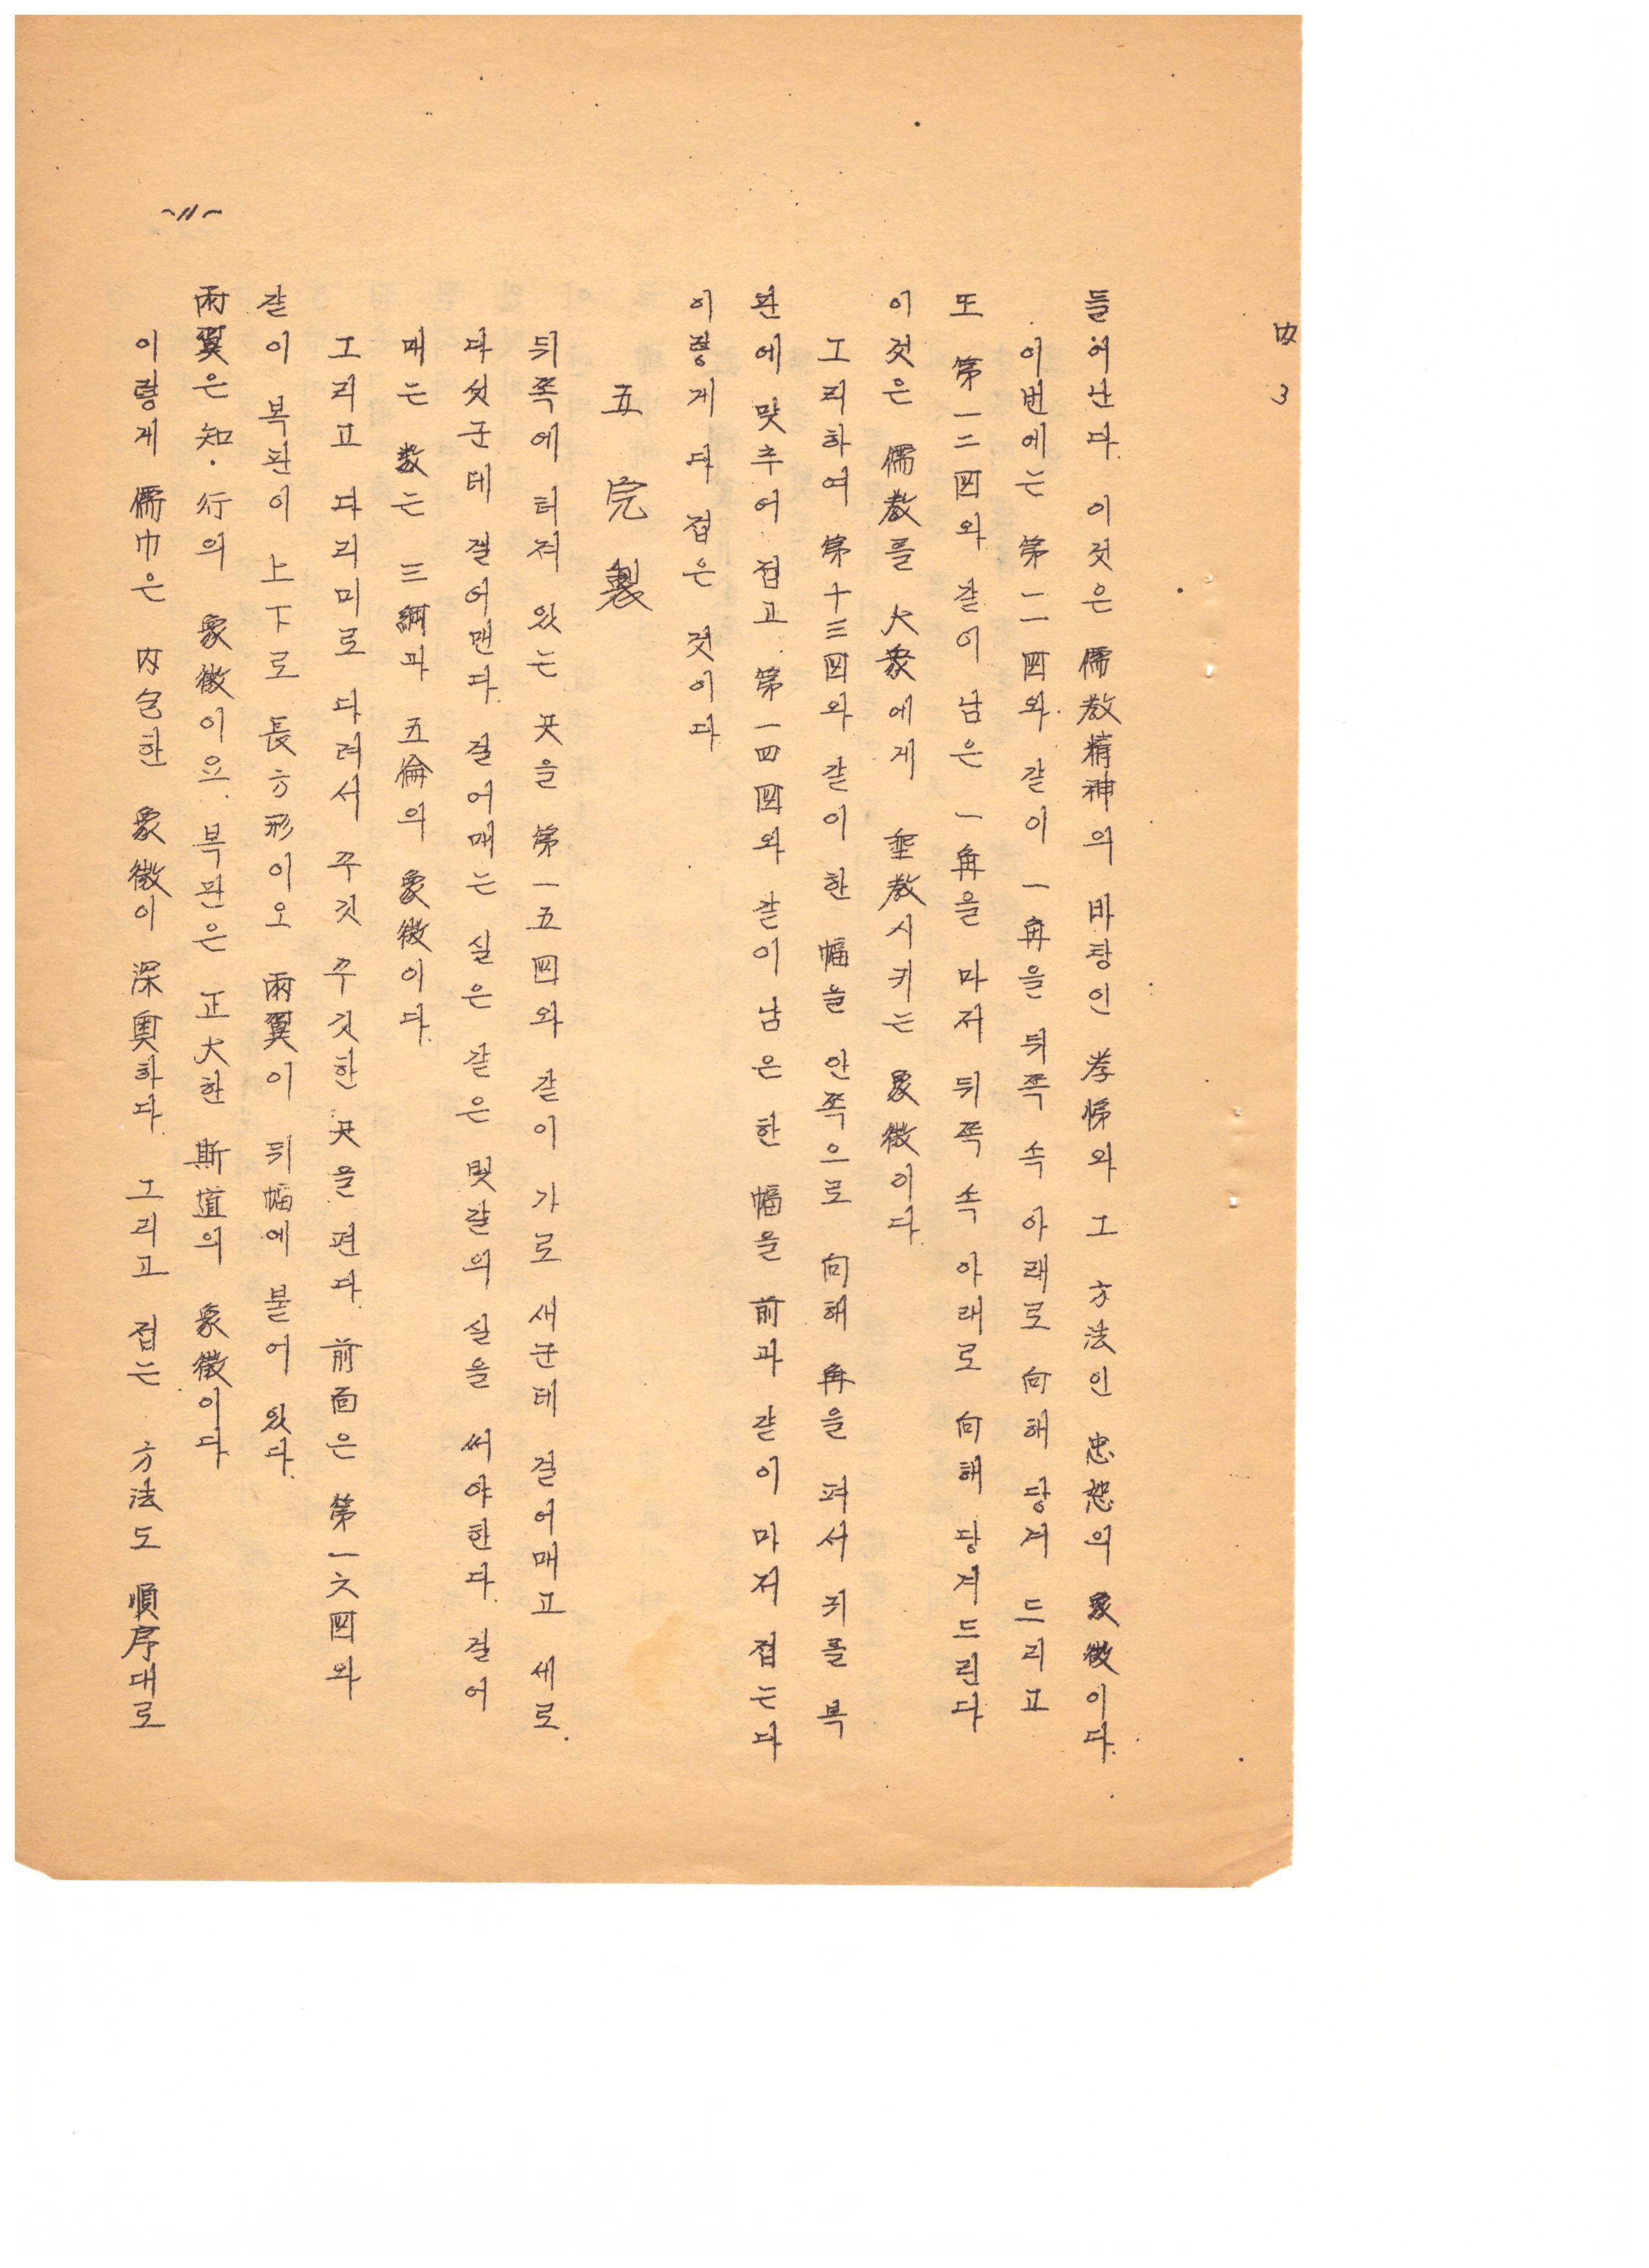 内 3
들어난다. 이것은 儒教精神의 바탕인 孝悌와 그 方法인 忠恕의 象徵이다.
이번에는 第一一図와 같이 一角을 뒤쪽 속 아래로 向해 당겨 드리고
또 第一二図와 같이 남은 一角을 마저 뒤쪽 속 아래로 向해 당겨드린다
이것은 儒教를 大衆에게 垂教시키는 象徵이다.
그리하여 第十三図와 같이 한 幅을 안쪽으로 向해 角을 펴서 귀를 복
판에 맞추어 접고 第一四図와 같이 남은 한 幅을 前과 같이 마저 접는다
이렇게 다 접은 것이다.
五 完 製
뒤쪽에 터져 있는 곳을 第一五図와 같이 가로 새군데 걸어매고 세로
다섯군데 걸어맨다. 걸어매는 실은 같은 빛갈의 실을 써야한다. 걸어
매는 数는 三綱과 五倫의 象徵이다.
그리고 다리미로 다려서 꾸깃 꾸깃한 곳을 편다. 前面은 第一六図와
같이 복판이 上下로 長方形이오 兩翼이 뒤幅에 붙어 있다.
兩翼은 知·行의 象徵이요. 복판은 正大한 斯道의 象徵이다
이렇게 儒巾은 內包한 象徵이 深奧하다. 그리고 접는 方法도 順序대로
~11~